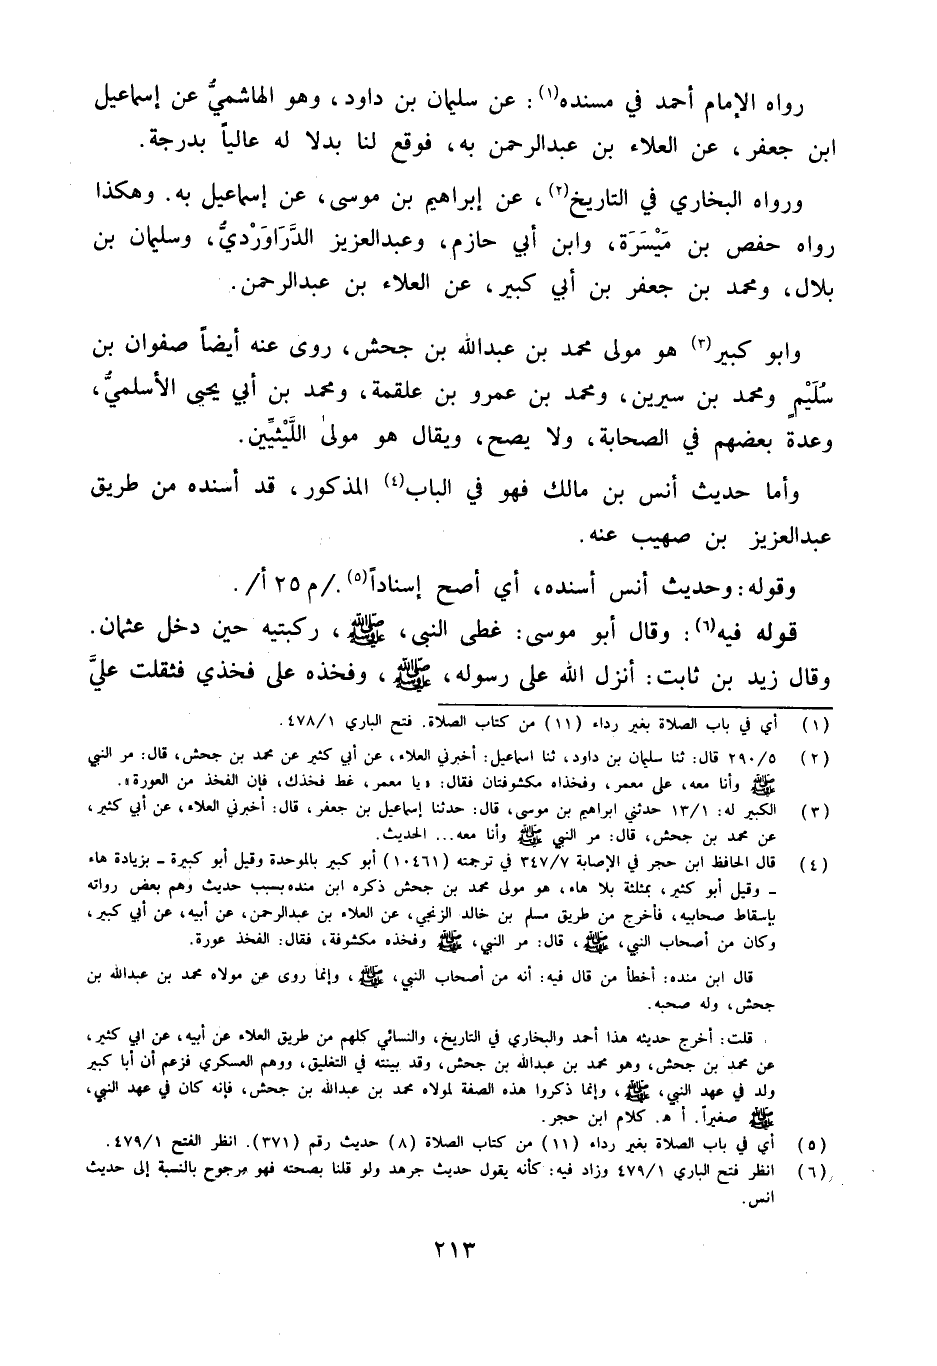 رواه الإمام أحمد في مسنده(١): عن سليمان بن داود، وهو الهاشميُّ عن إسماعيل
ابن جعفر، عن العلاء بن عبدالرحمن به، فوقع لنا بدلا له عالياً بدرجة.
ورواه البخاري في التاريخ(٢)، عن إبراهيم بن موسى، عن إسماعيل به. وهكذا
رواه حفص بن مَيْسَرَة، وابن أبي حازم، وعبدالعزيز الدَّرَاوَرْديُّ، وسليمان بن
بلال، ومحمد بن جعفر بن أبي كبير، عن العلاء بن عبدالرحمن.
وابو كبير(٣) هو مولى محمد بن عبدالله بن جحش، روى عنه أيضاً صفوان بن
سُلَيْمٍ ومحمد بن سيرين، ومحمد بن عمرو بن علقمة، ومحمد بن أبي يحيى الأسلميُّ،
وعدة بعضهم في الصحابة، ولا يصح، ويقال هو مولىٰ اللَّيْثيِّين.
وأما حديث أنس بن مالك فهو في الباب(٤) المذكور، قد أسنده من طريق
عبدالعزيز بن صهيب عنه.
وقوله: وحديث أنس أسنده، أي أصح إسناداً(٥)./م ٢٥ أ/.
قوله فيه(٦): وقال أبو موسى: غطى النبي، ﷺ، ركبتيه حين دخل عثمان.
وقال زيد بن ثابت: أنزل الله على رسوله، ﷺ، وفخذه على فخذي فثقلت عليَّ
(١) أي في باب الصلاة بغير رداء (١١) من كتاب الصلاة. فتح الباري ٤٧٨/١.
(٢) ٢٩٠/٥ قال: ثنا سليمان بن داود، ثنا اسماعيل: أخبرني العلاء، عن أبي كثير عن محمد بن جحش، قال: مر النبي
ﷺ وأنا معه، على معمر، وفخذاه مكشوفتان فقال: «يا معمر، غط فخذك، فإن الفخذ من العورة».
(٣) الكبير له: ١٣/١ حدثني ابراهيم بن موسى، قال: حدثنا إسماعيل بن جعفر، قال: أخبرني العلاء، عن أبي كثير،
عن محمد بن جحش، قال: مر النبي ﷺ وأنا معه... الحديث.
(٤) قال الحافظ ابن حجر في الإصابة ٣٤٧/٧ في ترجمته (١٠٤٦١) أبو كبير بالموحدة وقيل أبو كبيرة ـ بزيادة هاء
ـ وقيل أبو كثير، بمثلثة بلا هاء، هو مولى محمد بن جحش ذكره ابن منده بسبب حديث وهم بعض رواته
بإسقاط صحابيه، فأخرج من طريق مسلم بن خالد الزنجي، عن العلاء بن عبدالرحمن، عن أبيه، عن أبي كبير،
وكان من أصحاب النبي، ﷺ، قال: مر النبي، ﷺ وفخذه مكشوفة، فقال: الفخذ عورة.
قال ابن منده: أخطأ من قال فيه: أنه من أصحاب النبي، ﷺ، وإنما روى عن مولاه محمد بن عبدالله بن
جحش، وله صحبه.
قلت: أخرج حديثه هذا أحمد والبخاري في التاريخ، والنسائي كلهم من طريق العلاء عن أبيه، عن ابي كثير،
عن محمد بن جحش، وهو محمد بن عبدالله بن جحش، وقد بينته في التغليق، ووهم العسكري فزعم أن أبا كبير
ولد في عهد النبي، ﷺ، وإنما ذكروا هذه الصفة لمولاه محمد بن عبدالله بن جحش، فإنه كان في عهد النبي،
ﷺ صغيراً. أ هـ. كلام ابن حجر.
(٥) أي في باب الصلاة بغير رداء (١١) من كتاب الصلاة (٨) حديث رقم (٣٧١). انظر الفتح ٤٧٩/١.
(٦) انظر فتح الباري ٤٧٩/١ وزاد فيه: كأنه يقول حديث جرهد ولو قلنا بصحته فهو مرجوح بالنسبة إلى حديث
انس.
٢١٣